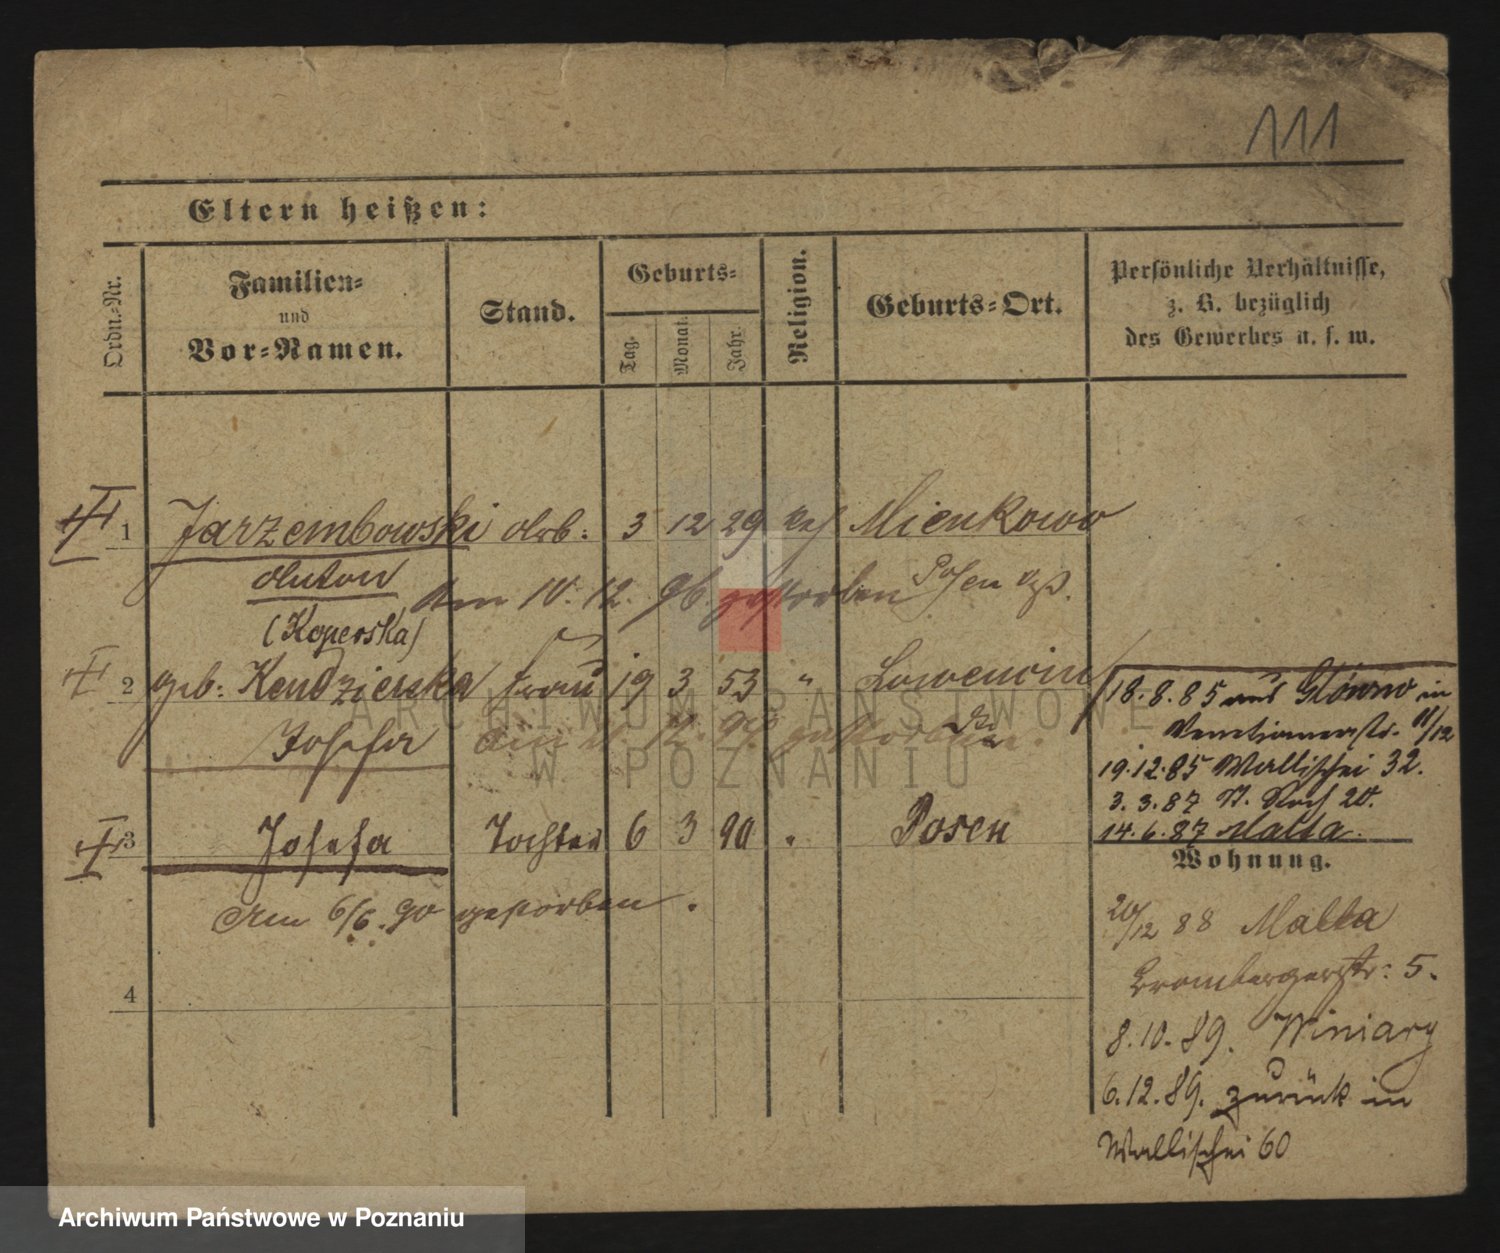 111
Eltern heißen:
Ordn.-Nr.
Familien-
und
Vor-Namen.
Stand.
Geburts-
Tag.
Monat.
Jahr.
Religion.
Geburts-Ort.
Persönliche Verhältnisse,
z. B. bezüglich
des Gewerbes u. s. w.
1 Jarzembowski Arb: 3 12 29 kath Mienkowo
Anton
Am 10. 12. 96 gestorben Posen
(Koperska)
2 geb: Kendzierska Frau 19 3 53 " Lowencin
Josefa
3 Josefa Tochter 6 3 90 " Posen
Am 6/6. 90 gestorben.
4
18.8.85 aus Glowno in
Venetianerstr. 11/12
19.12.85 Wallischei 32.
3.3.87 St. Roch 20.
14.6.87 Malta.
Wohnung.
20/12 88 Malta
Brombergerstr: 5.
8.10.89. Winiary
6.12.89. zurück in
Wallischei 60
ARCHIWUM PAŃSTWOWE
W POZNANIU
Archiwum Państwowe w Poznaniu